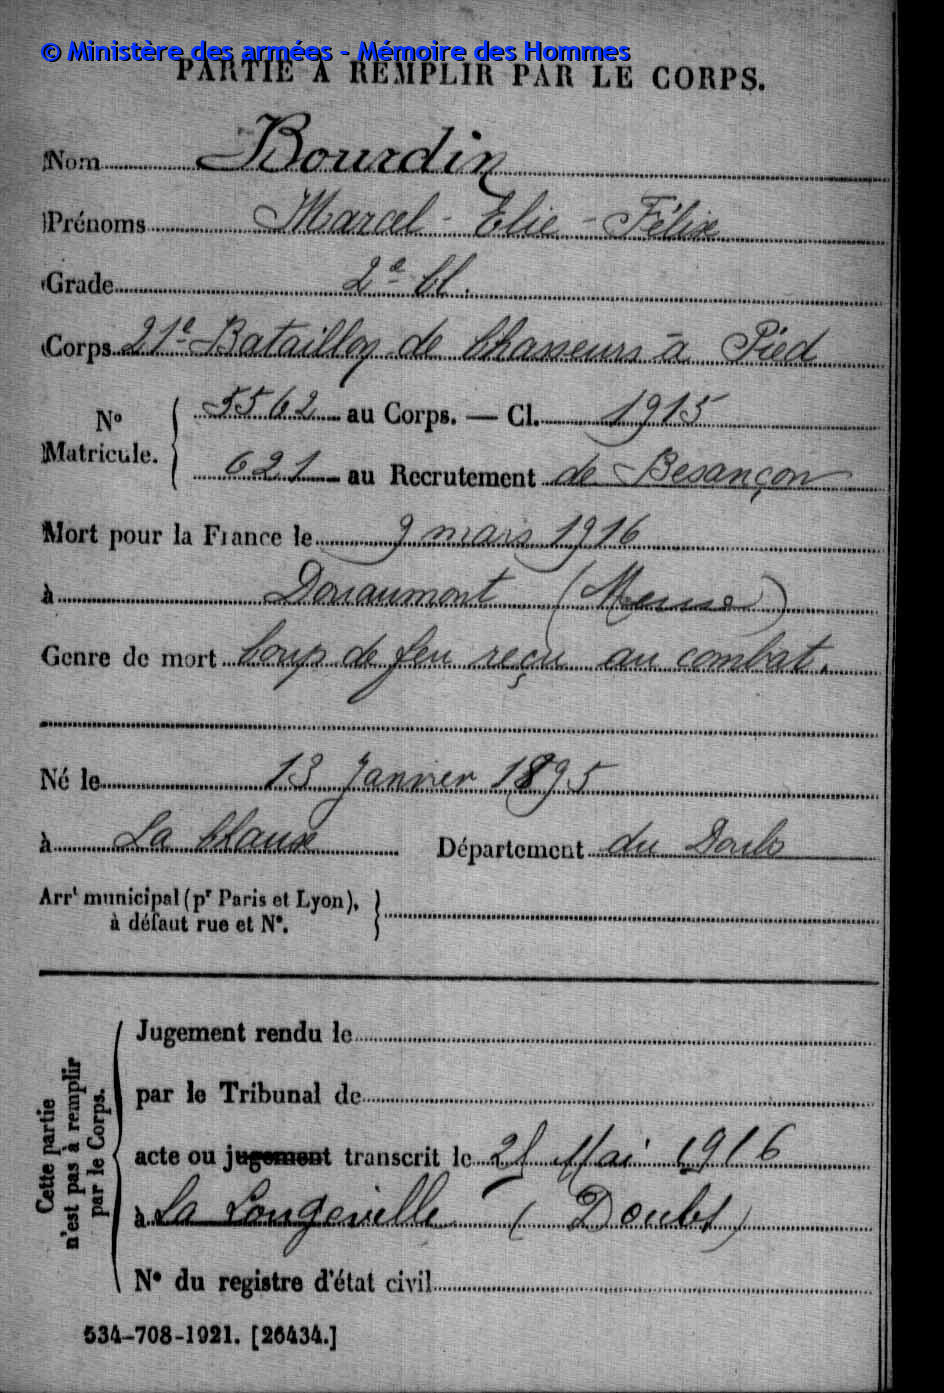 © Ministère des armées - Mémoire des Hommes
PARTIE À REMPLIR PAR LE CORPS.
Nom Bourdin
Prénoms Marcel - Elie - Félix
Grade 2e cl.
Corps 21e Bataillon de Chasseurs à Pied
No Matricule. { 5562 au Corps. — Cl. 1915
621 au Recrutement de Besançon
Mort pour la France le 9 mars 1916
à Douaumont (Meuse)
Genre de mort Coup de feu reçu au combat.
Né le 13 Janvier 1895
à La Chaux Département du Doubs
Arrt municipal (pr Paris et Lyon), à défaut rue et No. }
Cette partie n'est pas à remplir par le Corps. {
Jugement rendu le
par le Tribunal de
acte ou jugement transcrit le Mai 1916
à La Longeville (Doubs)
No du registre d'état civil
534-708-1921. [26434.]